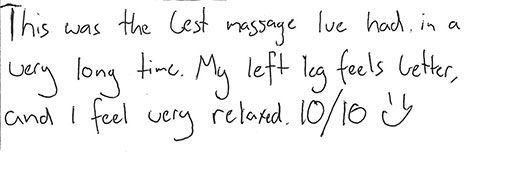 This was the best massage Ive had. in a
very long time. My left leg feels better,
and I feel very relaxed. 10/10 :)